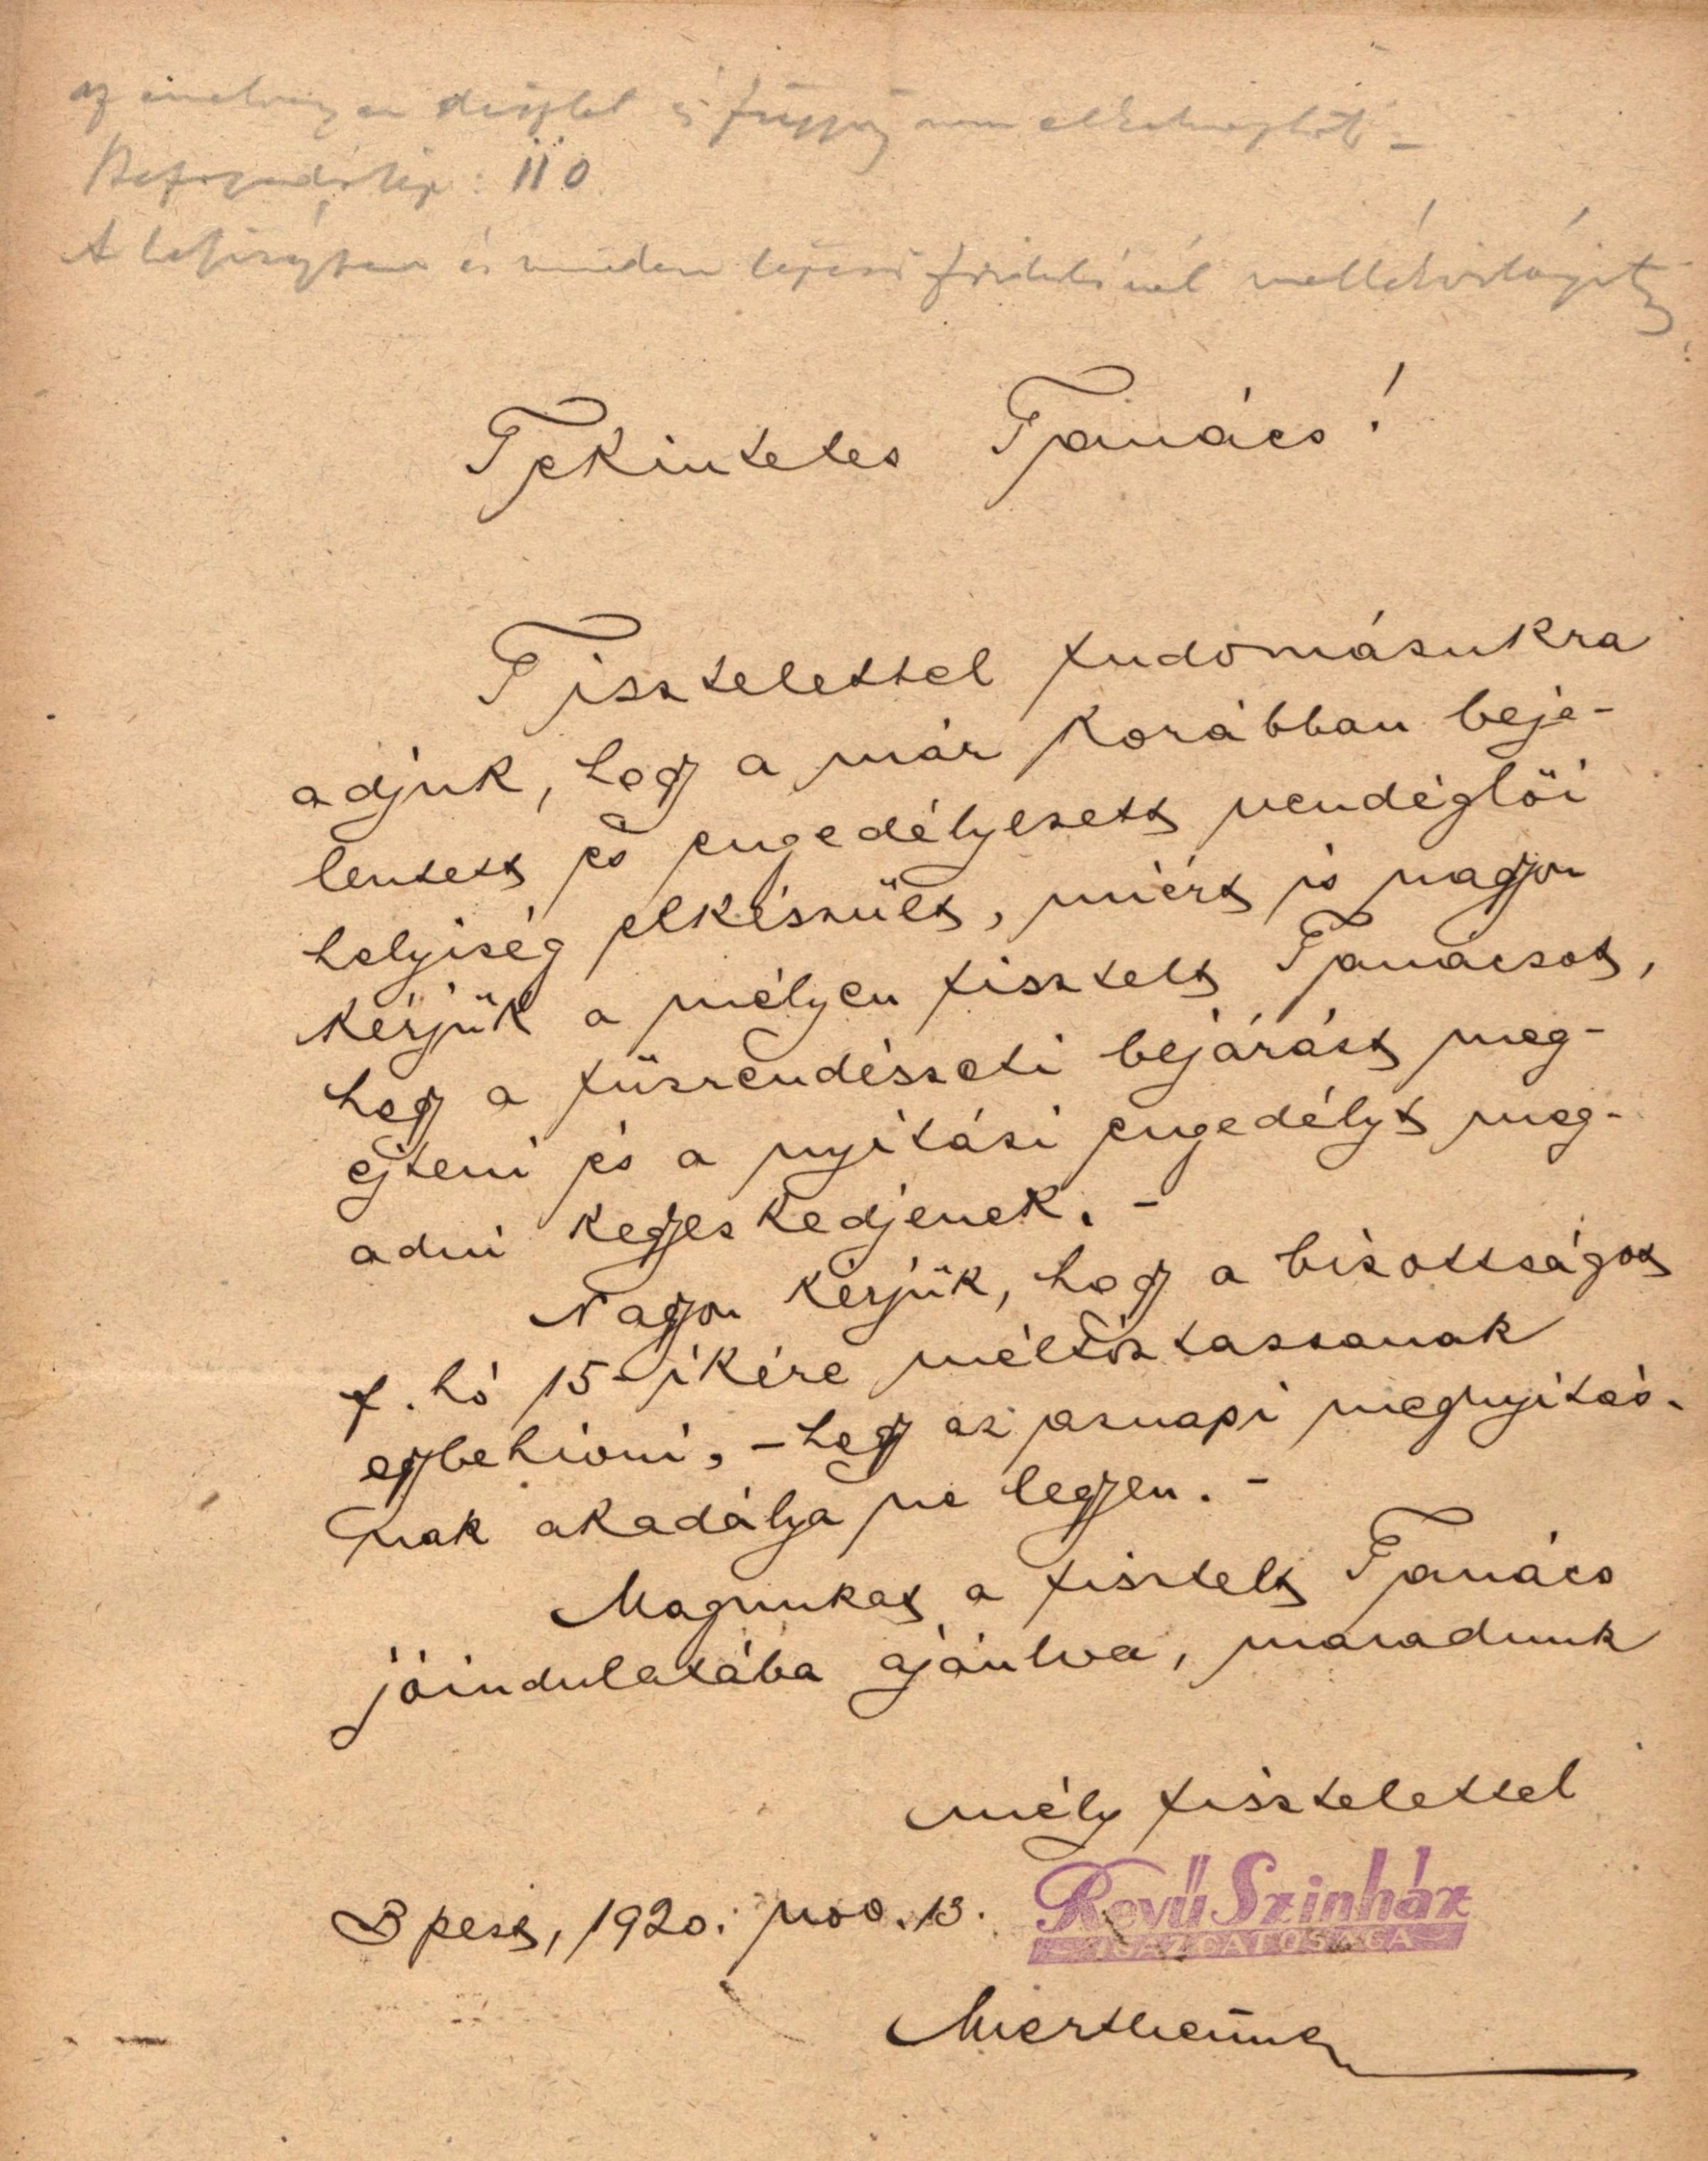 az emelvényen díszlet és függöny nem alkalmazható. –
Befogadókép: 110
A helyiségben és minden lépcső fordulónál mellékvilágítás
Tekintetes Tanács!
Tisztelettel tudomásukra
adjuk, hogy a már korábban beje-
lentett és engedélyezett vendéglői
helyiség elkészült, miért is nagyon
kérjük a mélyen tisztelt Tanácsot,
hogy a tűzrendészeti bejárást meg-
ejteni és a nyitási engedélyt meg-
adni kegyeskedjenek. –
Nagyon kérjük, hogy a bizottságot
f. hó 15-ikére méltóztassanak
egybehívni, – hogy az aznapi megnyitás-
nak akadálya ne legyen. –
Magunkat a tisztelt Tanács
jóindulatába ajánlva, maradunk
mély tisztelettel
Bpest, 1920. nov. 13.
Revű Szinház
IGAZGATÓSÁGA